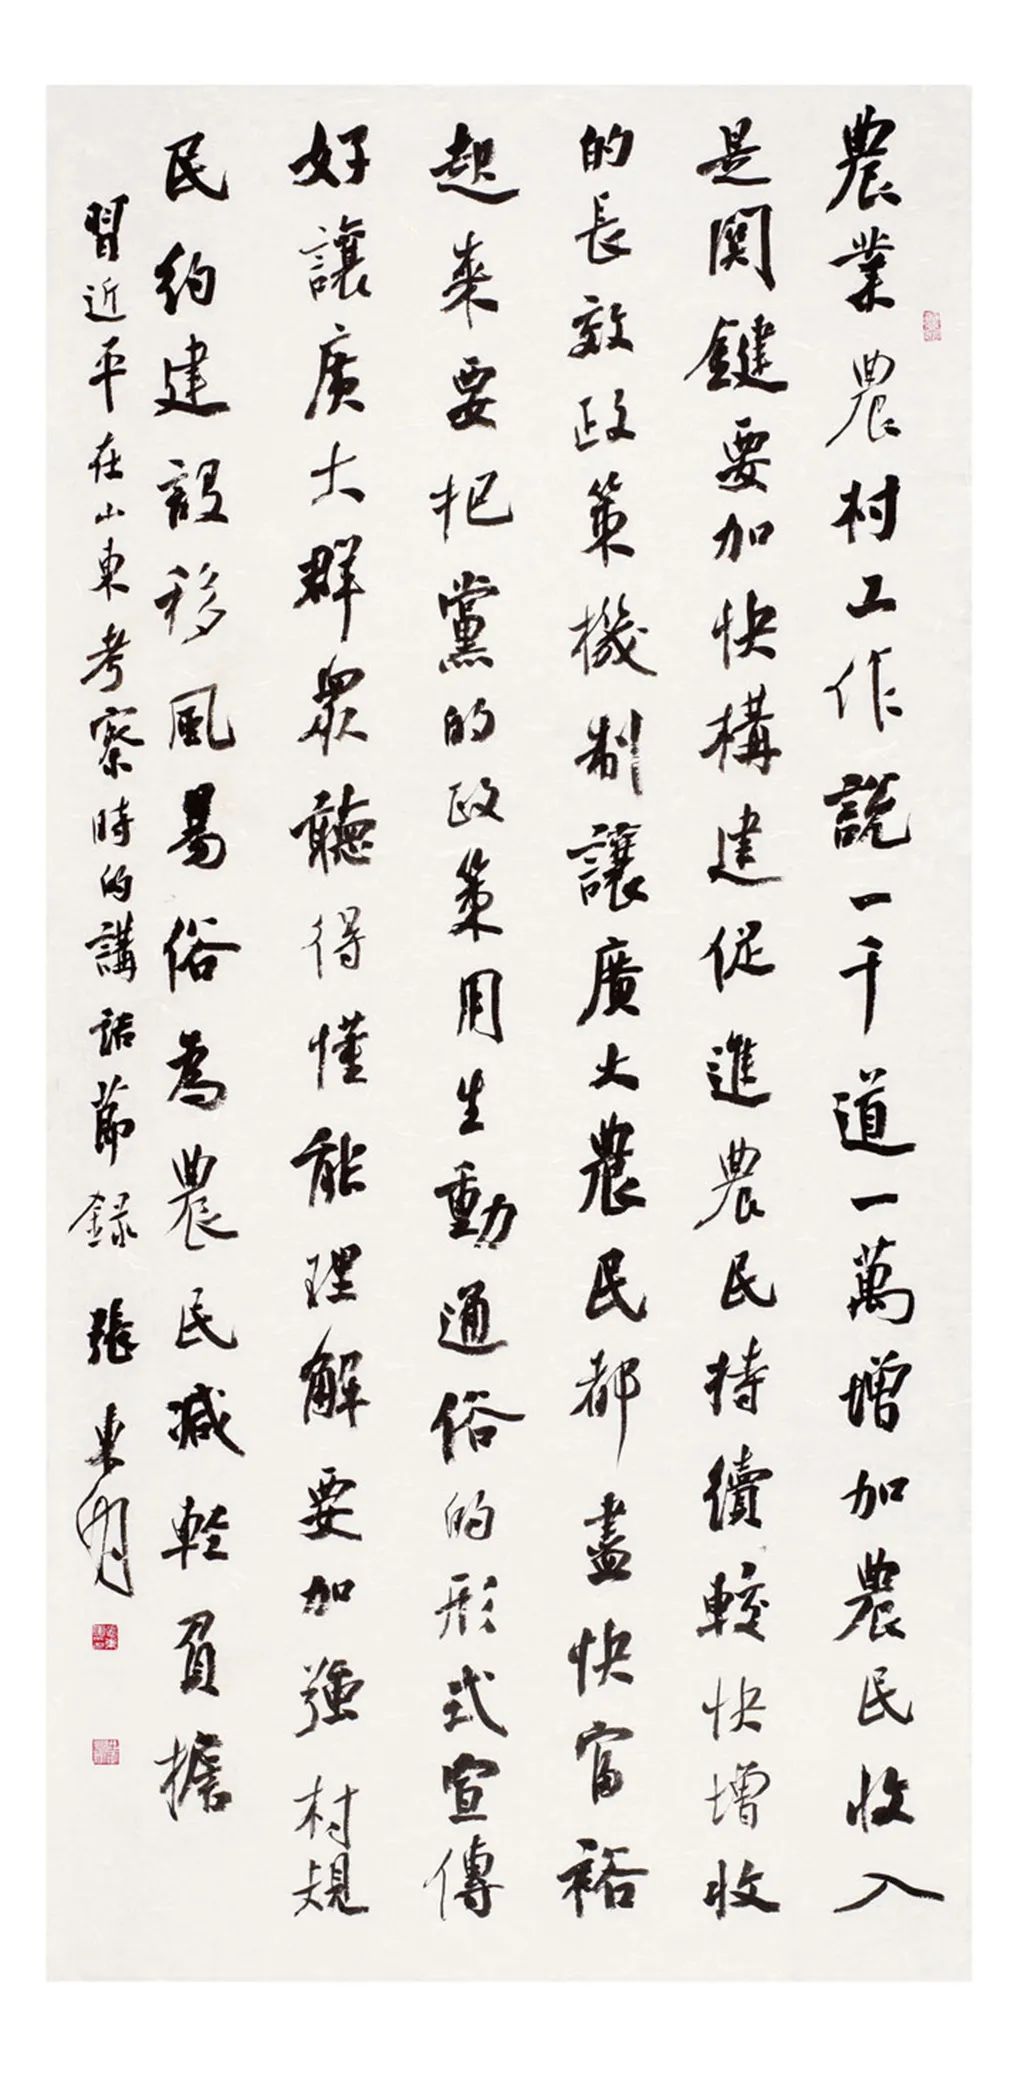 農業農村工作説一千道一萬增加農民收入
是関鍵要加快構建促進農民持續較快增收
的長效政策機制讓廣大農民都盡快富裕
起來要把黨的政策用生動通俗的形式宣傳
好讓廣大群眾聽得懂能理解要加強村規
民約建設移風易俗為農民減輕負擔
習近平在山東考察時的講話節録 張東明